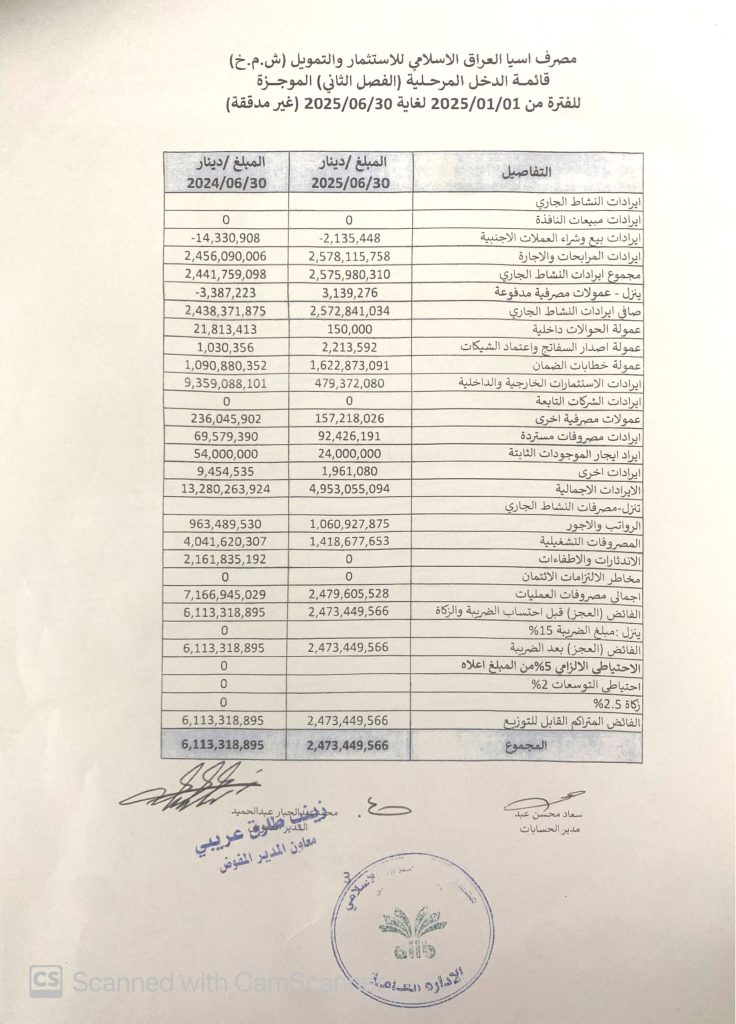 مصرف اسيا العراق الاسلامي للاستثمار والتمويل (ش.م.خ)
قائمة الدخل المرحلية (الفصل الثاني) الموجزة
للفترة من 2025/01/01 لغاية 2025/06/30 (غير مدققة)
التفاصيل المبلغ /دينار 2025/06/30 المبلغ /دينار 2024/06/30
ايرادات النشاط الجاري
ايرادات مبيعات النافذة 0 0
ايرادات بيع وشراء العملات الاجنبية 2,135,448- 14,330,908-
ايرادات المرابحات والاجارة 2,578,115,758 2,456,090,006
مجموع ايرادات النشاط الجاري 2,575,980,310 2,441,759,098
ينزل - عمولات مصرفية مدفوعة 3,139,276 3,387,223-
صافي ايرادات النشاط الجاري 2,572,841,034 2,438,371,875
عمولة الحوالات داخلية 150,000 21,813,413
عمولة اصدار السفاتج واعتماد الشيكات 2,213,592 1,030,356
عمولة خطابات الضمان 1,622,873,091 1,090,880,352
ايرادات الاستثمارات الخارجية والداخلية 479,372,080 9,359,088,101
ايرادات الشركات التابعة 0 0
عمولات مصرفية اخرى 157,218,026 236,045,902
ايرادات مصروفات مستردة 92,426,191 69,579,390
ايراد ايجار الموجودات الثابتة 24,000,000 54,000,000
ايرادات اخرى 1,961,080 9,454,535
الايرادات الاجمالية 4,953,055,094 13,280,263,924
تنزل-مصرفات النشاط الجاري
الرواتب والاجور 1,060,927,875 963,489,530
المصروفات التشغيلية 1,418,677,653 4,041,620,307
الاندثارات والاطفاءات 0 2,161,835,192
مخاطر الالتزامات الائتمان 0 0
اجمالي مصروفات العمليات 2,479,605,528 7,166,945,029
الفائض (العجز) قبل احتساب الضريبة والزكاة 2,473,449,566 6,113,318,895
ينزل :مبلغ الضريبة 15% 0
الفائض (العجز) بعد الضريبة 2,473,449,566 6,113,318,895
الاحتياطي الالزامي 5%من المبلغ اعلاه 0
احتياطي التوسعات 2% 0
زكاة 2.5% 0
الفائض المتراكم القابل للتوزيع 2,473,449,566 6,113,318,895
المجموع 2,473,449,566 6,113,318,895
سعاد محسن عبد
مدير الحسابات
عبدالحميد
زينب طارق عريبي
معاون المدير المفوض
الادارة العامة
CS Scanned with CamScanner